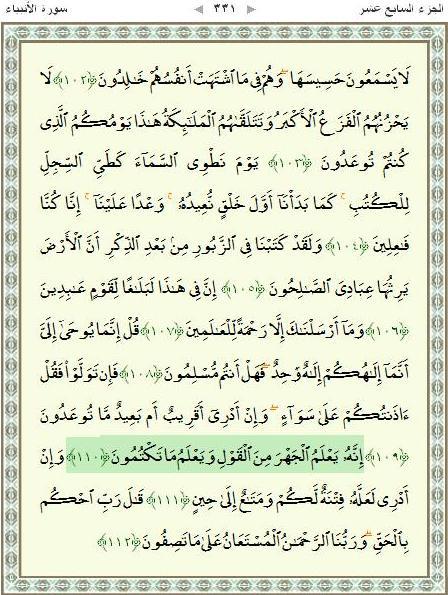 الجزء السابع عشر ٣٣١ سورة الأنبياء
لَا يَسْمَعُونَ حَسِيسَهَا ۖ وَهُمْ فِى مَا ٱشْتَهَتْ أَنفُسُهُمْ خَٰلِدُونَ ﴿١٠٢﴾ لَا
يَحْزُنُهُمُ ٱلْفَزَعُ ٱلْأَكْبَرُ وَتَتَلَقَّىٰهُمُ ٱلْمَلَٰٓئِكَةُ هَٰذَا يَوْمُكُمُ ٱلَّذِى
كُنتُمْ تُوعَدُونَ ﴿١٠٣﴾ يَوْمَ نَطْوِى ٱلسَّمَآءَ كَطَىِّ ٱلسِّجِلِّ
لِلْكُتُبِ ۚ كَمَا بَدَأْنَآ أَوَّلَ خَلْقٍ نُّعِيدُهُۥ ۚ وَعْدًا عَلَيْنَآ ۚ إِنَّا كُنَّا
فَٰعِلِينَ ﴿١٠٤﴾ وَلَقَدْ كَتَبْنَا فِى ٱلزَّبُورِ مِنۢ بَعْدِ ٱلذِّكْرِ أَنَّ ٱلْأَرْضَ
يَرِثُهَا عِبَادِىَ ٱلصَّٰلِحُونَ ﴿١٠٥﴾ إِنَّ فِى هَٰذَا لَبَلَٰغًا لِّقَوْمٍ عَٰبِدِينَ
﴿١٠٦﴾ وَمَآ أَرْسَلْنَٰكَ إِلَّا رَحْمَةً لِّلْعَٰلَمِينَ ﴿١٠٧﴾ قُلْ إِنَّمَا يُوحَىٰٓ إِلَىَّ
أَنَّمَآ إِلَٰهُكُمْ إِلَٰهٌ وَٰحِدٌ ۖ فَهَلْ أَنتُم مُّسْلِمُونَ ﴿١٠٨﴾ فَإِن تَوَلَّوْا۟ فَقُلْ
ءَاذَنتُكُمْ عَلَىٰ سَوَآءٍ ۖ وَإِنْ أَدْرِىٓ أَقَرِيبٌ أَم بَعِيدٌ مَّا تُوعَدُونَ
﴿١٠٩﴾ إِنَّهُۥ يَعْلَمُ ٱلْجَهْرَ مِنَ ٱلْقَوْلِ وَيَعْلَمُ مَا تَكْتُمُونَ ﴿١١٠﴾ وَإِنْ
أَدْرِى لَعَلَّهُۥ فِتْنَةٌ لَّكُمْ وَمَتَٰعٌ إِلَىٰ حِينٍ ﴿١١١﴾ قَٰلَ رَبِّ ٱحْكُم
بِٱلْحَقِّ ۗ وَرَبُّنَا ٱلرَّحْمَٰنُ ٱلْمُسْتَعَانُ عَلَىٰ مَا تَصِفُونَ ﴿١١٢﴾